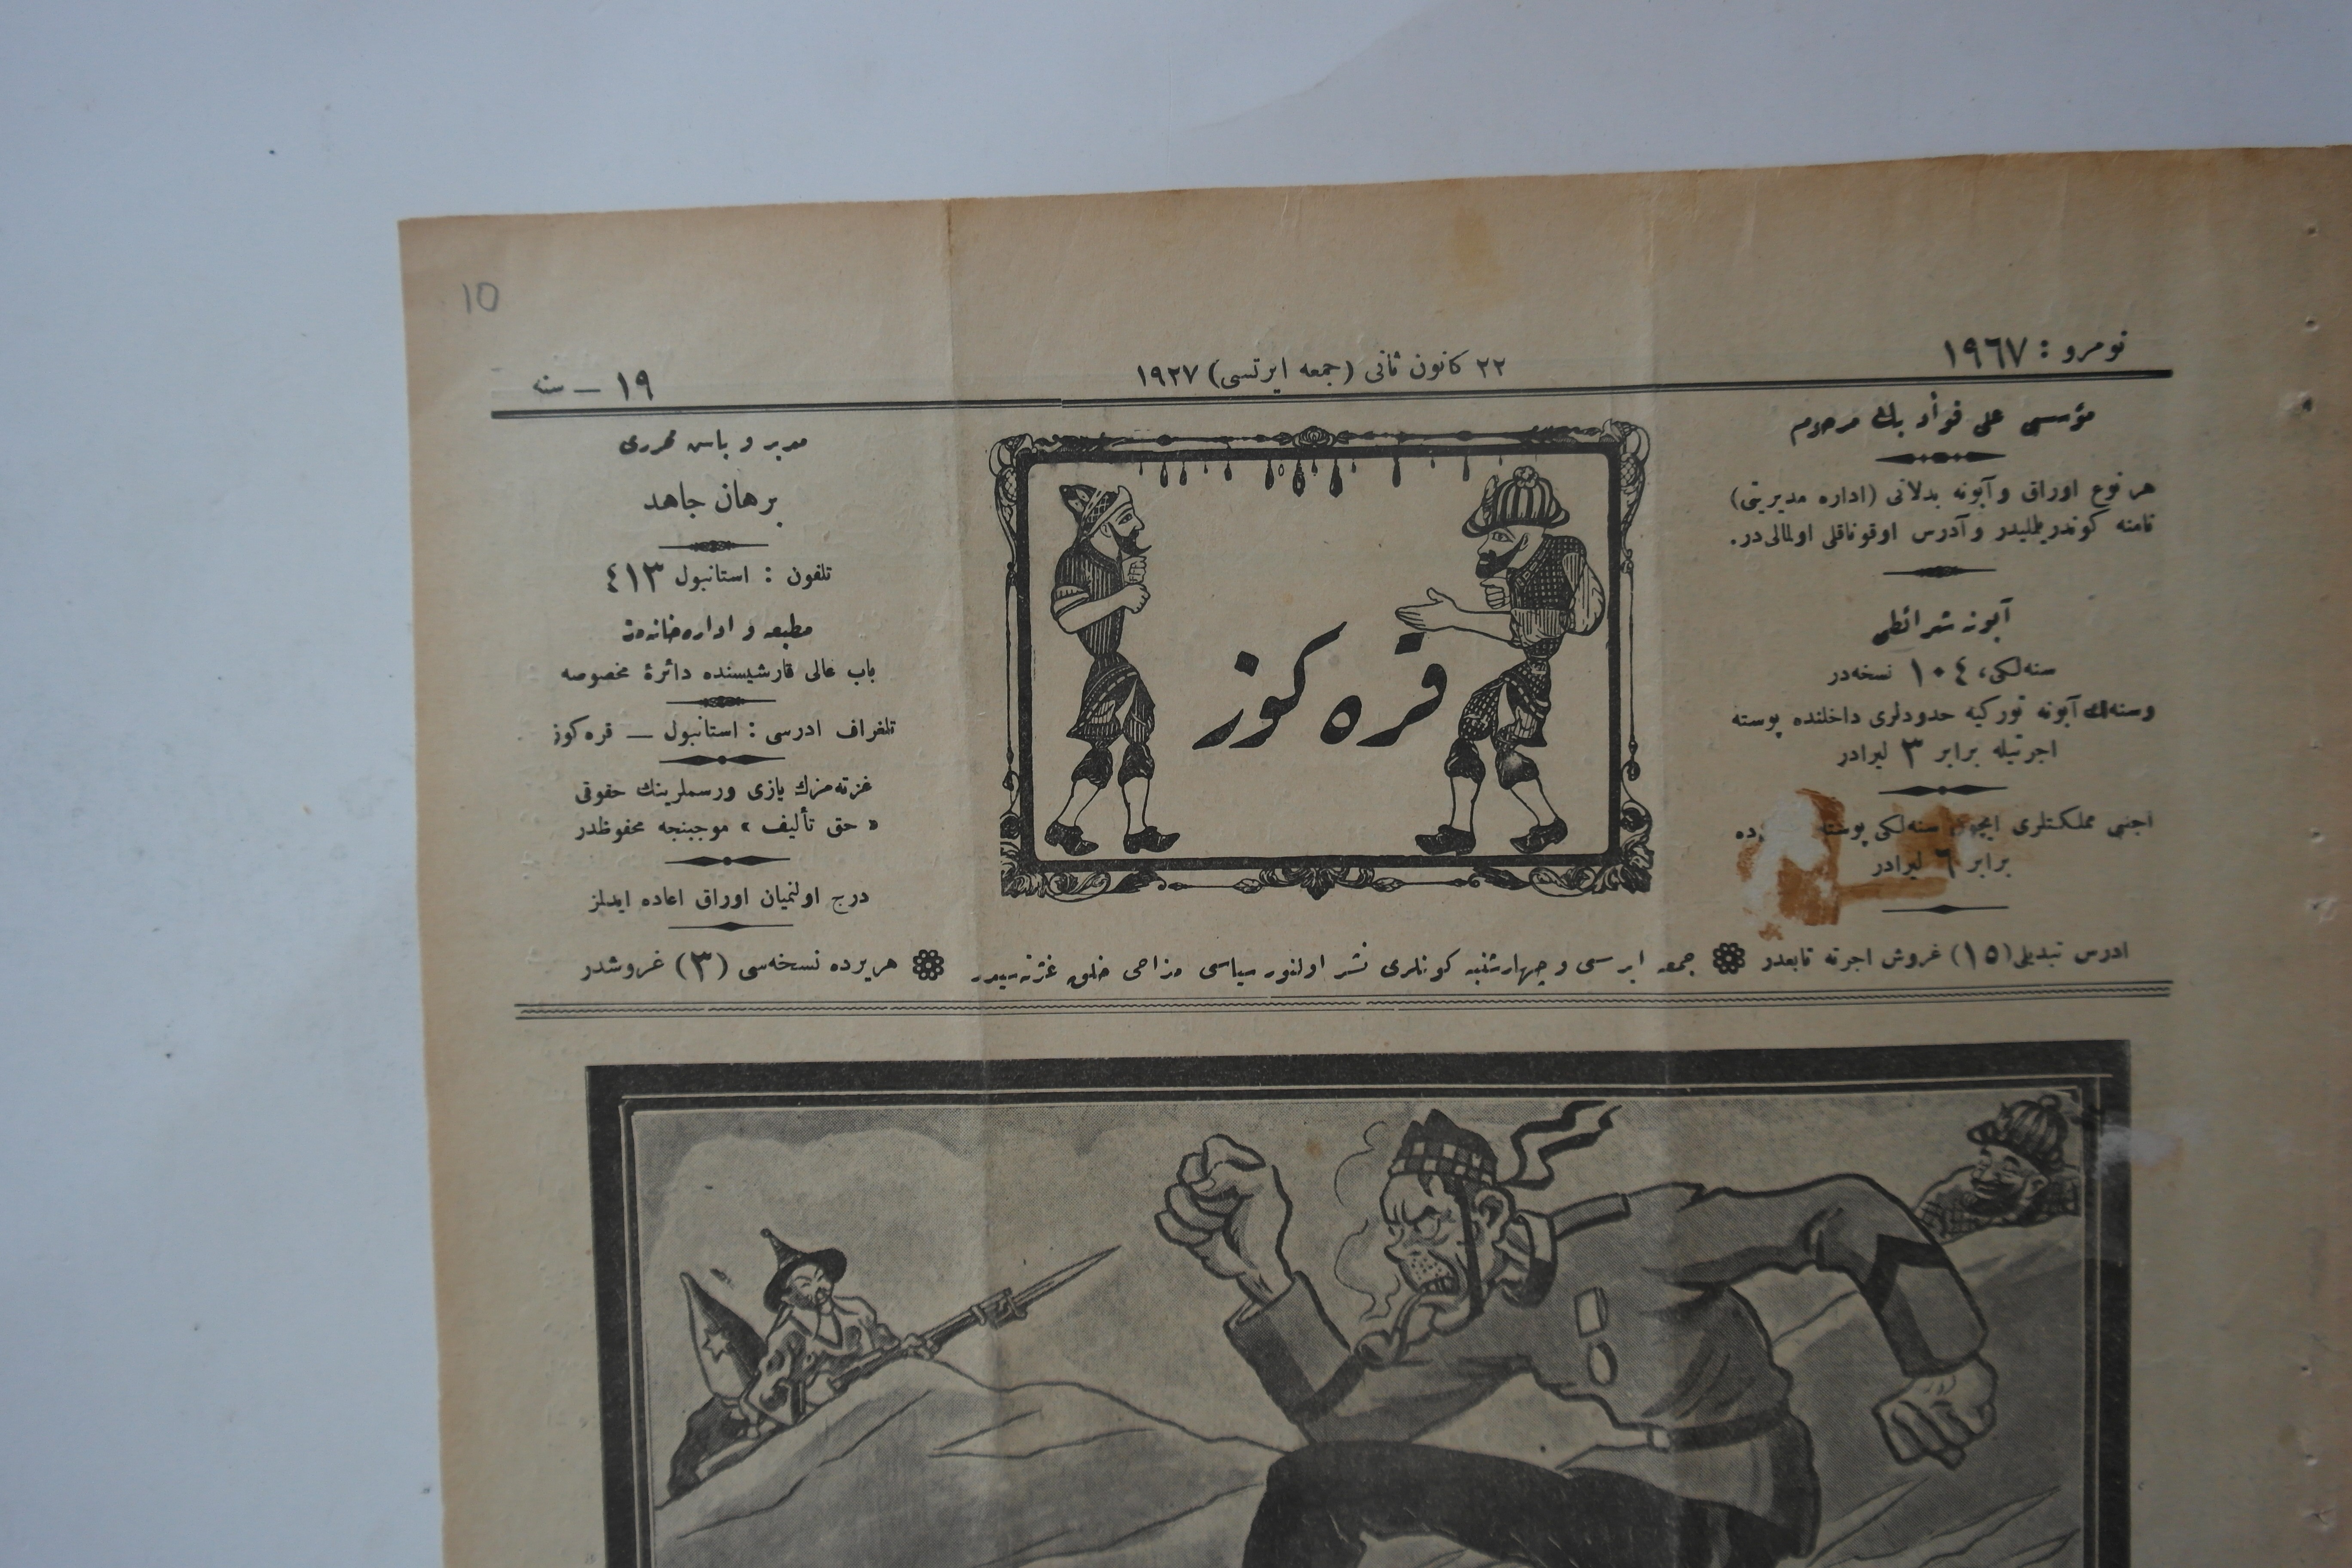 10
نومرو : ١٩٦٧
٢٢ كانون ثانی (جمعه ایرتسی) ١٩٢٧
١٩ — سنه
مؤسسی علی فؤاد بك مرحوم
هر نوع اوراق و آبونه بدلاتی (اداره مدیریتی)
نامنه كوندریلملیدر و آدرس اوقوناقلی اولمالی در.
آبونه شرائطی
سنه لكی، ١٠٤ نسخه در
وسنه لك آبونه توركیه حدودلری داخلنده پوسته
اجرتیله برابر ٣ لیرادر
اجنبی مملكتلری ایچون سنه لكی پوسته
برابر ٦ لیرادر
قره كوز
مدیر و باش محرری
برهان جاهد
تلفون : استانبول ٤١٣
مطبعه و اداره خانه مز
باب عالی قارشیسنده دائرهٔ مخصوصه
تلغراف ادرسی : استانبول — قره كوز
غزته مزك یازی ورسملرینك حقوقی
« حق تألیف » موجبنجه محفوظدر
درج اولنمیان اوراق اعاده ایدلز
ادرس تبدیلی (١٥) غروش اجرته تابعدر
جمعه ایرتسی و چهارشنبه كونلری نشر اولنور سیاسی مزاحی خلق غزته سیدر
هر یرده نسخه سی (٣) غروشدر